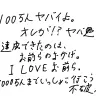 100万人ヤバイよ。
オレが!? ヤバ過
達成できたのは、
お前らのおかげ。
I LOVE お前ら。
1000万人までいっしょに行こう
不破